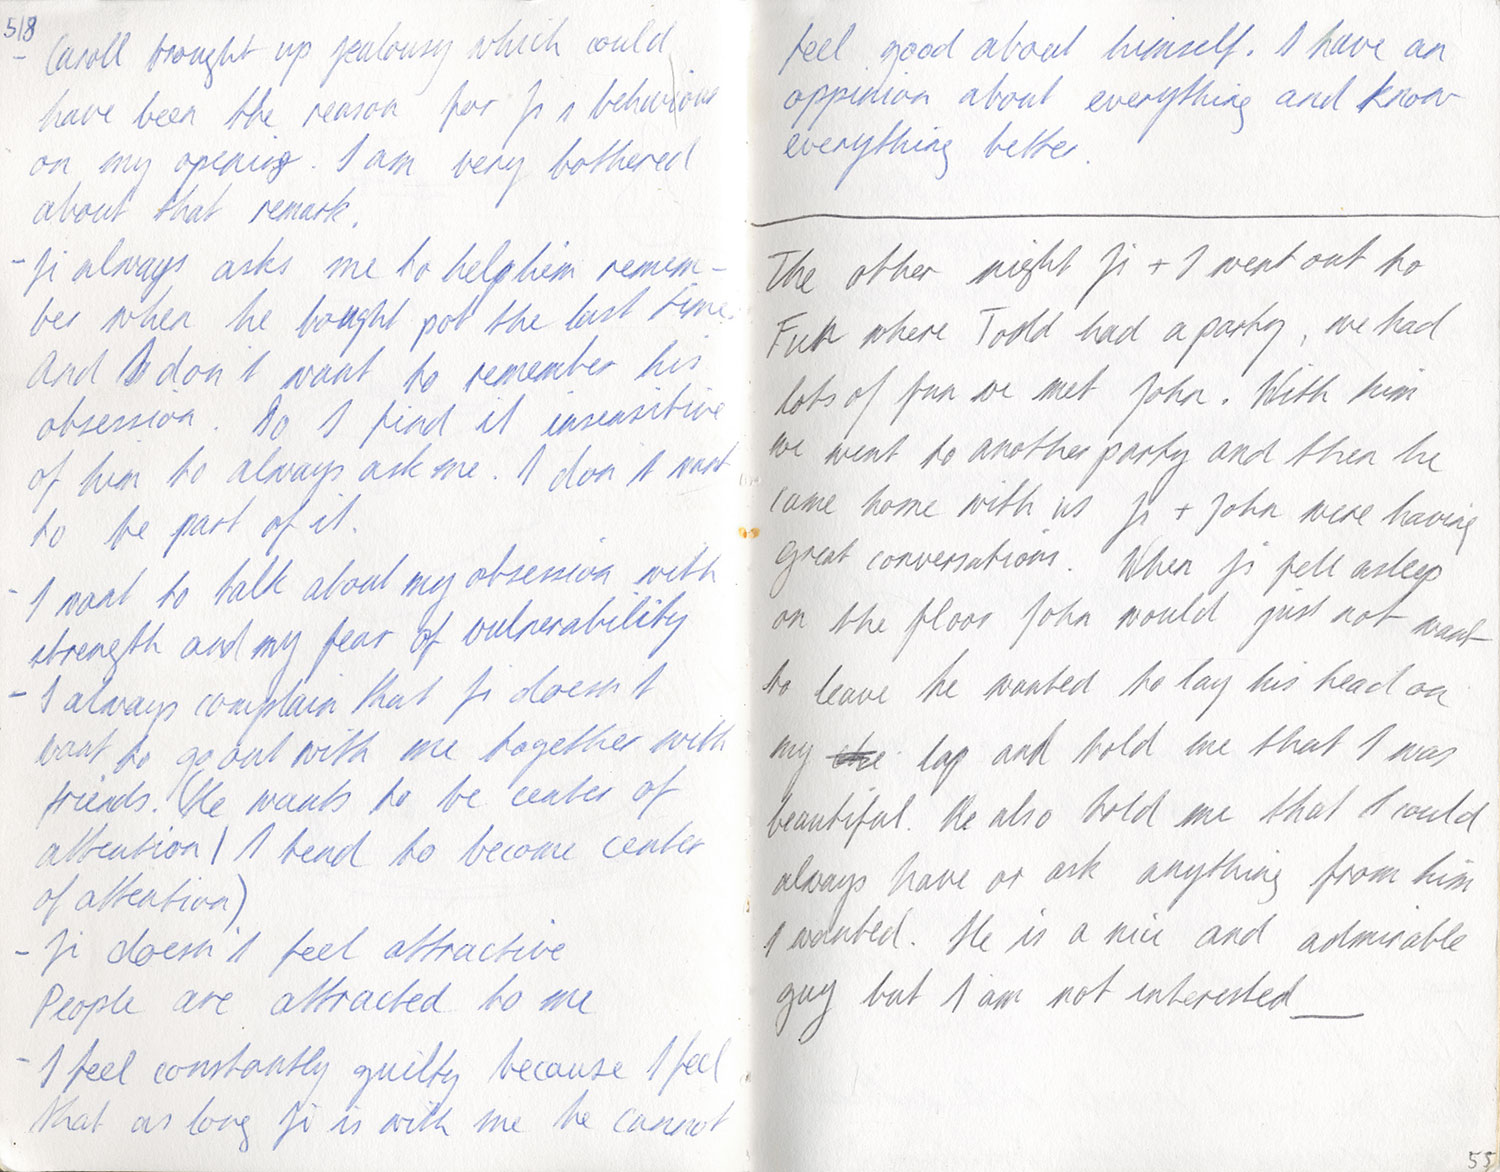 5/8
- Caroll brought up jealousy which could
have been the reason for Ji's behaviour
on my opening. I am very bothered
about that remark.
- Ji always asks me to help him remem-
ber when he bought pot the last time.
And I don't want to remember his
obsession. So I find it insensitive
of him to always ask me. I don't want
to be part of it.
- I want to talk about my obsession with
strength and my fear of vulnerability
- I always complain that Ji doesn't
want to go out with me together with
friends. (He wants to be center of
attention/ I tend to become center
of attention)
- Ji doesn't feel attractive
People are attracted to me
- I feel constantly guilty because I feel
that as long Ji is with me he cannot
feel good about himself. I have an
oppinion about everything and know
everything better.
The other night Ji + I went out to
Fun where Todd had a party, we had
lots of fun we met John. With him
we went to another party and then he
came home with us Ji + John were having
great conversations. When Ji fell asleep
on the floor John would just not want
to leave he wanted to lay his head on
my the lap and told me that I was
beautiful. He also told me that I could
always have or ask anything from him
I wanted. He is a nice and admirable
guy but I am not interested__
55